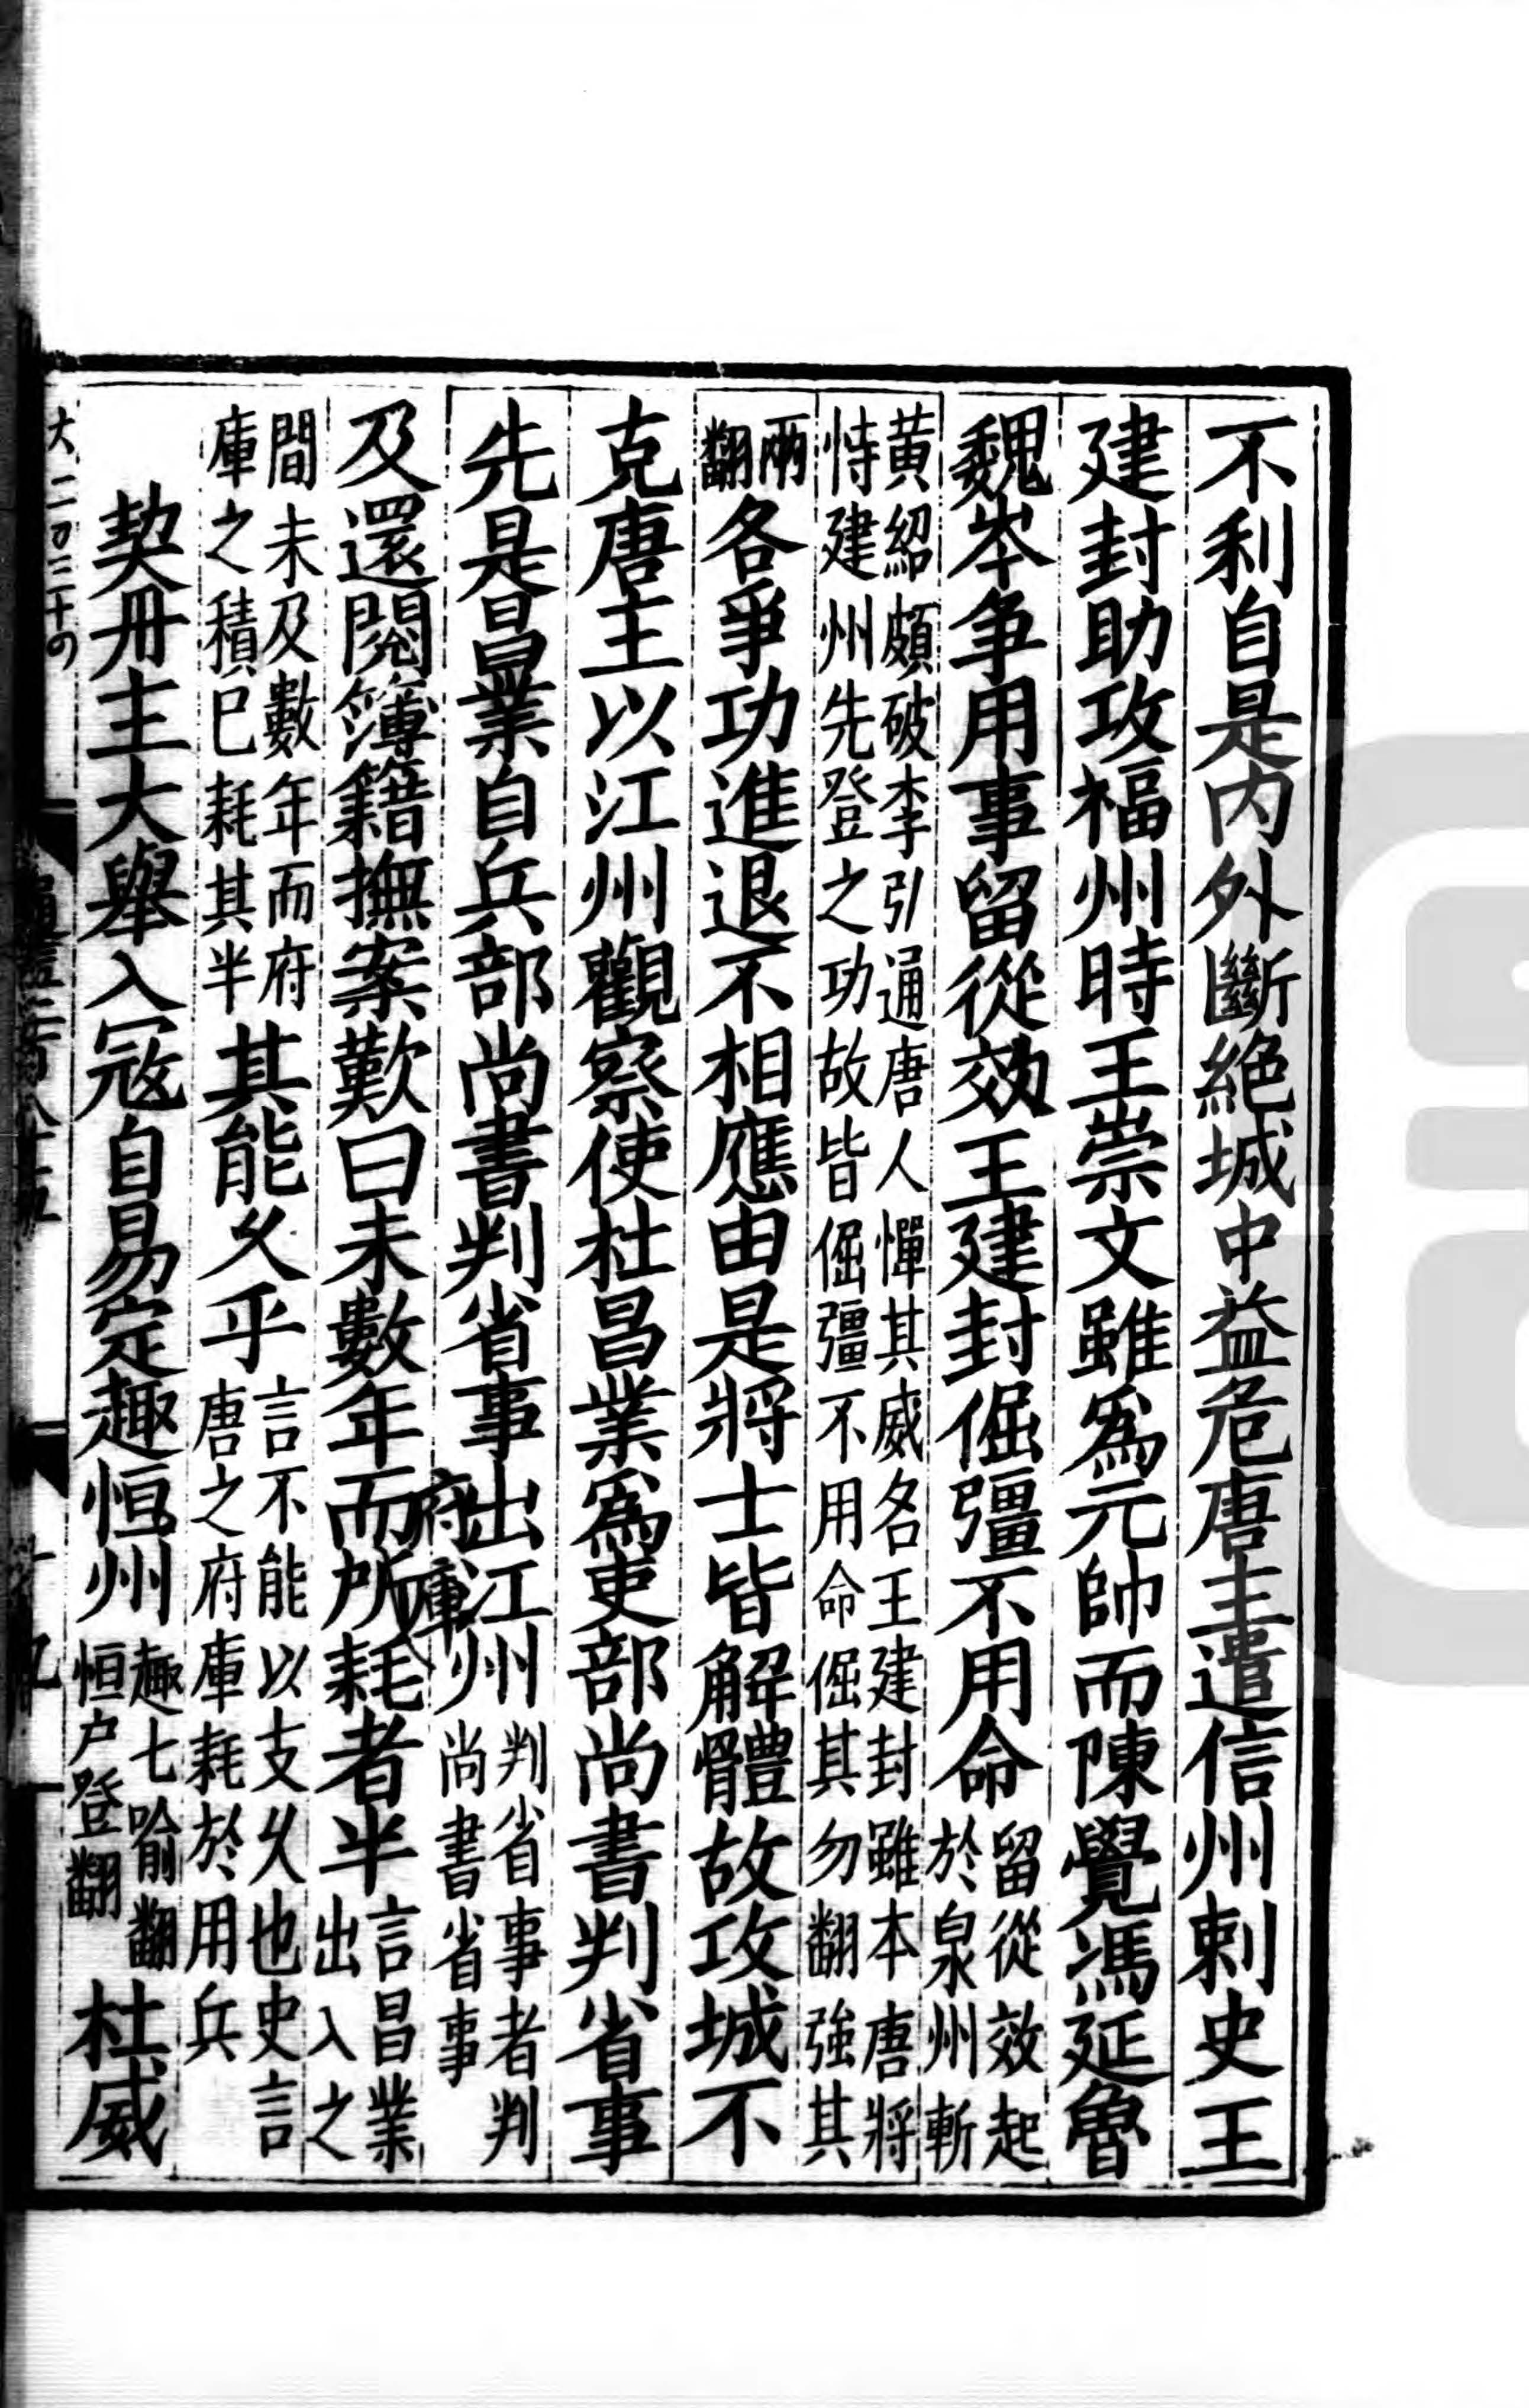 不利自是内外斷絶城中益危唐主遣信州刺史王
建封助攻福州時王崇文雖爲元帥而陳覺馮延魯
魏岑争用事留從效王建封倔彊不用命留從效起於泉州斬
黄紹頗破李引通唐人憚其威名王建封雖本唐將恃建州先登之功故皆倔彊不用命倔其勿翻強其
兩翻各爭功進退不相應由是將士皆解體故攻城不
克唐主以江州觀察使杜昌業爲吏部尚書判省事
先是昌業自兵部尚書判省事出江州判省事者判尚書省事
及還閱簿籍撫案歎曰未數年而府庫所耗者半言昌業出入之
間未及數年而府庫之積巳耗其半其能乆乎言不能以支乆也史言唐之府庫耗於用兵
契丹主大舉入冦自易定趣恒州趣七喻翻恒户登翻杜威
大二百三十四
十九